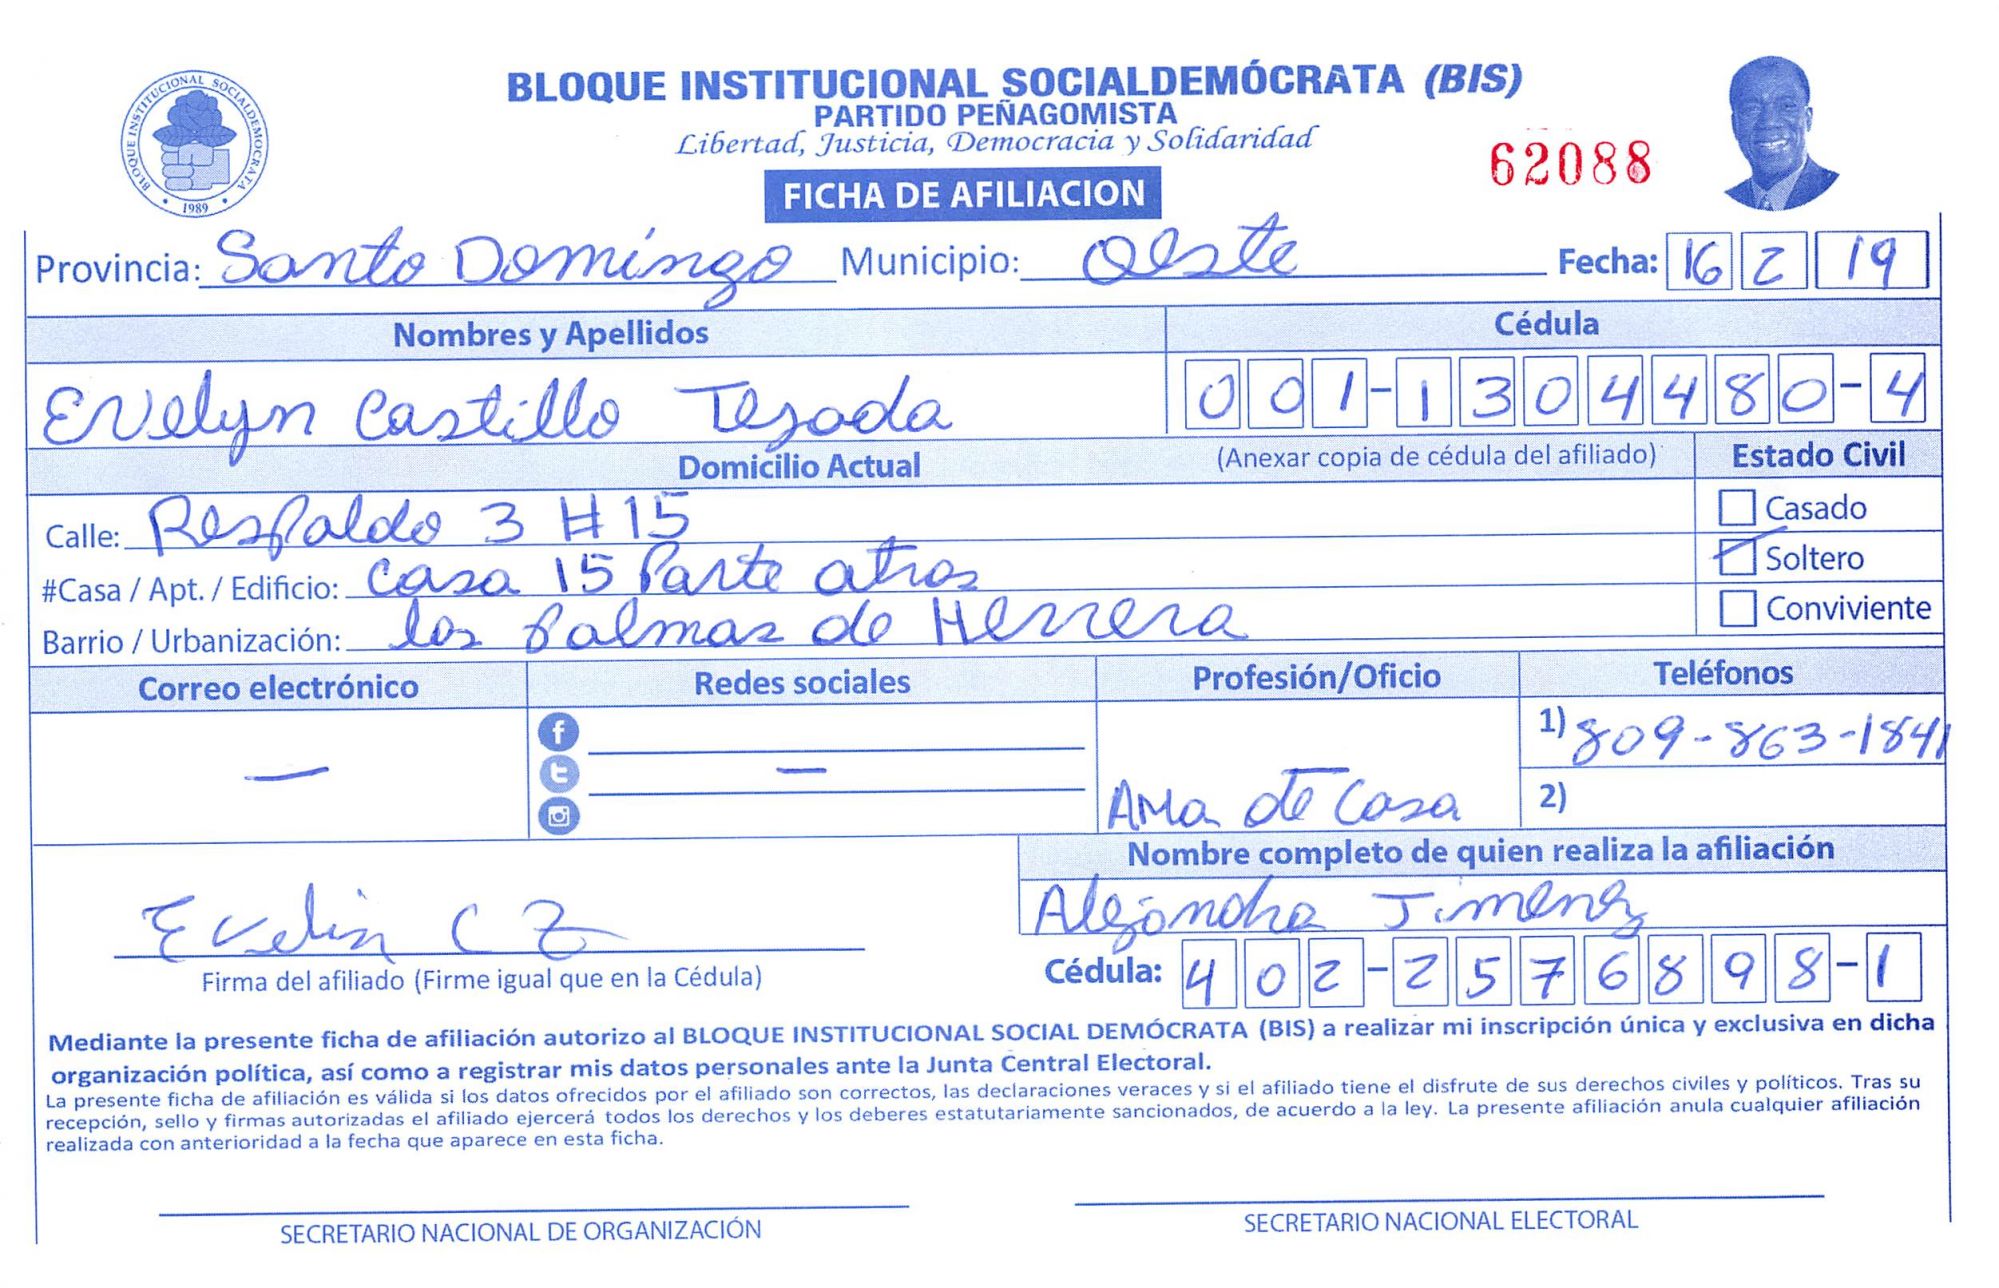 BLOQUE INSTITUCIONAL SOCIALDEMÓCRATA (BIS)
PARTIDO PEÑAGOMISTA
Libertad, Justicia, Democracia y Solidaridad
62088
BLOQUE INSTITUCIONAL SOCIALDEMOCRATA
1989
FICHA DE AFILIACION
Provincia: Santo Domingo Municipio: Oeste Fecha: 16 2 19
Nombres y Apellidos Cédula
Evelyn Castillo Tejada 001-1304480-4
Domicilio Actual (Anexar copia de cédula del afiliado) Estado Civil
Calle: Respaldo 3 #15 Casado
#Casa / Apt. / Edificio: Casa 15 Parte atras Soltero
Barrio / Urbanización: las Palmas de Herrera Conviviente
Correo electrónico Redes sociales Profesión/Oficio Teléfonos
— — Ama de Casa 1) 809-863-1841
2)
Nombre completo de quien realiza la afiliación
Alejandra Jimenez
Evelin C
Firma del afiliado (Firme igual que en la Cédula) Cédula: 402-2576898-1
Mediante la presente ficha de afiliación autorizo al BLOQUE INSTITUCIONAL SOCIAL DEMÓCRATA (BIS) a realizar mi inscripción única y exclusiva en dicha
organización política, así como a registrar mis datos personales ante la Junta Central Electoral.
La presente ficha de afiliación es válida si los datos ofrecidos por el afiliado son correctos, las declaraciones veraces y si el afiliado tiene el disfrute de sus derechos civiles y políticos. Tras su
recepción, sello y firmas autorizadas el afiliado ejercerá todos los derechos y los deberes estatutariamente sancionados, de acuerdo a la ley. La presente afiliación anula cualquier afiliación
realizada con anterioridad a la fecha que aparece en esta ficha.
SECRETARIO NACIONAL DE ORGANIZACIÓN SECRETARIO NACIONAL ELECTORAL